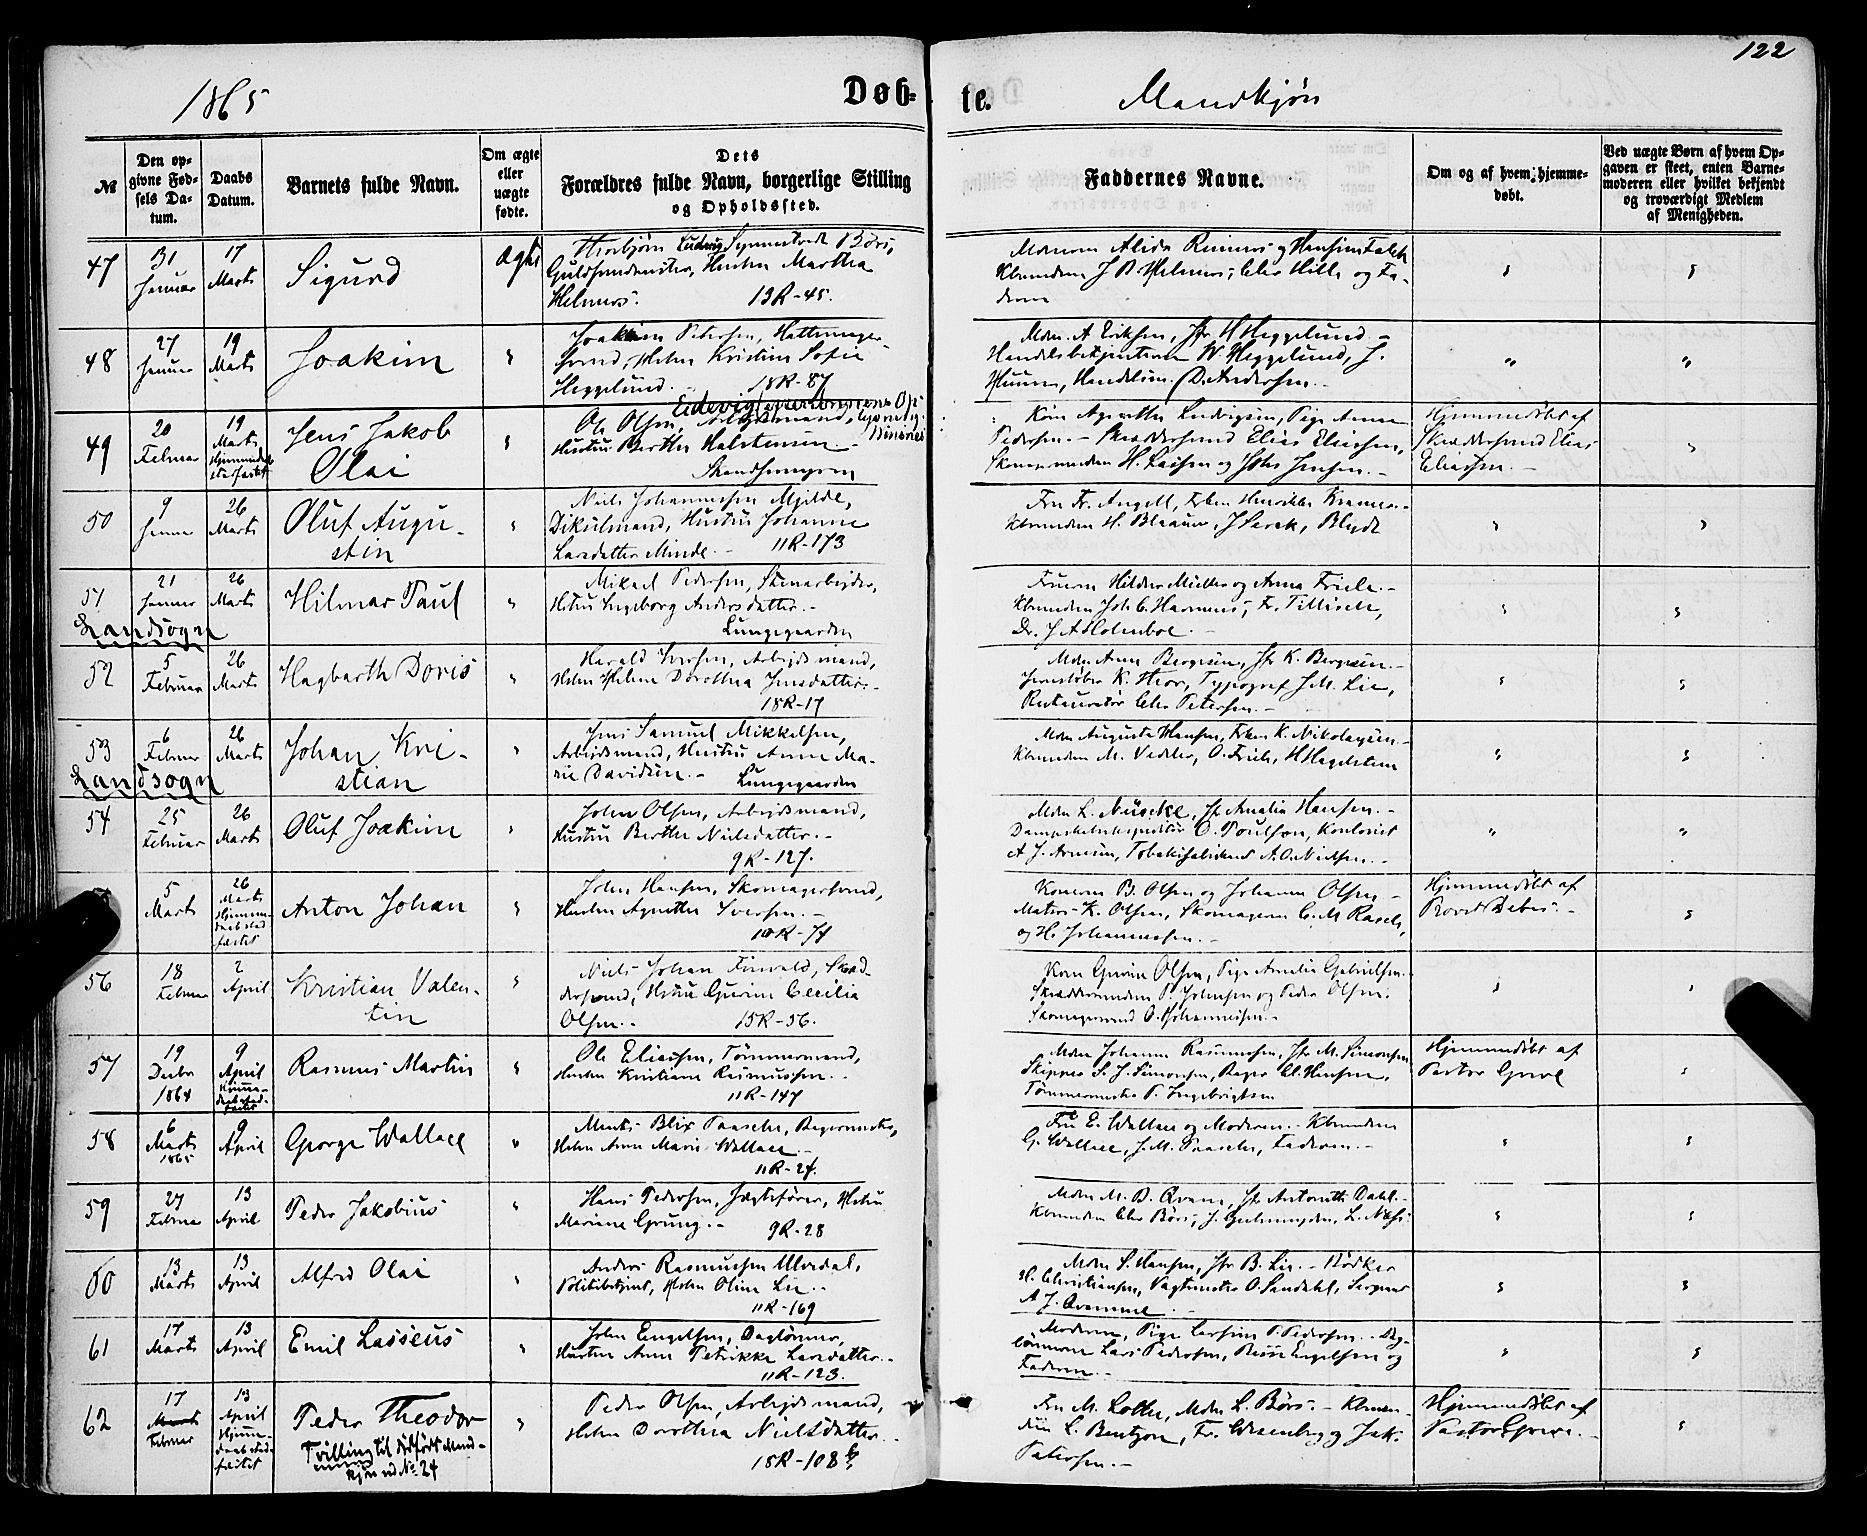 122
1865
Døb-
te.
Mandkjøn
№
Den op-
givne Fød-
sels Da-
tum.
Daabs
Datum.
Barnets fulde Navn.
Om ægte
eller
uægte
fødte.
Dets
Forældres fulde Navn, borgerlige Stilling
og Opholdssted.
Faddernes Navne.
Om og af hvem hjemme-
døbt.
Ved uægte Børn af hvem Op-
gaven er skeet, enten Barne-
moderen eller hvilket bekjendt
og troværdigt Medlem
af Menigheden.
47
31
Januar
17
Marts
Sigurd
Ægte
Thorbjørn Ludvig Synnestvedt Børs,
Guldsmedmester, Hustru Martha
Helmers.
13R-45.
Madame Alida Reimers og Hansine Falch
Kbmndene J B Helmers, Chr Hille og Fa-
deren
48
27
Januar
19
Marts
Joakim
Joakim Petersen, Hattemager-
svend, Hstru Kristine Sofie
Heggelund.
18R-87
Mdm. A Eriksen, Jfr H Heggelund -
Handelsbetjentene W. Heggelund, J.
Huun, Handelsm. D. Andersen.
49
20
Februar
19
Marts
Jens Jakob
Olai
Ole Olsen,
Hustru Berthe Halstensen.
Strandsnevringen
Kone Agnethe Ludvigsen, Pige Anne
Pedersen. - Skræddersvend Elias Eliassen,
Hjemmedøbt af
Skræddersvend Elias
Eliassen.
50
9
Januar
26
Marts
Oluf Augu-
stin
Niels Johannessen Mjelde,
Hustru Johanne
Larsdatter Minde.
11R-173
Fru Fr. Angell, Frken Henrikke Kramer.
Kbmndene H. Blaauw, J Lerck, Blydt
51
21
Januar
26
Marts
Landsogn
Hilmar Paul
Mikael Pedersen, Stenarbeider,
Hstru Ingeborg Andersdatter.
Lungegaarden
Fruerne Hilda Müller og Anna Friele.
Kbmndene Joh. C. Harmens, Fr. Tillisch,
Dr. J A Holmboe.
52
5
Februar
26
Marts
Hagbarth Doris
Harald Iversen, Arbejdsmand,
Hstru Helene Dorothea Jensdatter.
18R-17
Mdm Anne Bergesen, Jfr K. Bergesen.
Jernstøber K. Thor, Typograf J. M. Lie,
Restauratør Chr Petersen.
53
6
Februar
26
Marts
Landsogn
Johan Kri-
stian
Jens Samuel Mikkelsen,
Arbeidsmand, Hustru Anne Ma-
rie Davidsen.
Lungegaarden
Mdm Augusta Hansen, Frken K. Nikolaysen.
Kbmndene M. Vedeler, O. Friele, H Hagelsteen
54
25
Februar
26
Marts
Oluf Joakim
Johan Olsen, Arbeidsmand,
Hustru Berthe Nielsdatter.
9R-127.
Mdm L. Nüscke, Jfr Amalia Hansen.
Dampskibsexpeditør O. Poulson, Kontorist
A J. Arnesen, Tobaksfabrikant A. O. Nielsen.
5
Marts
26
Marts
Hjemme-
daab stad-
fæstet
Anton Johan
Johan Hansen, Skomagersvend,
Hustru Agnethe Iversen.
10R-74
Konerne B. Olsen og Johanne Olsen -
Matros K. Olsen, Skomagerne C. M. Rasch,
og H. Johannessen.
Hjemmedøbt af
Provst Debes.
56
18
Februar
2
April
Kristian Valen-
tin
Niels Johan Finvald, Skræd-
dersvend, Hstru Gurine Cecilia
Olsen.
15R-56.
Kone Gurine Olsen, Pige Amalia Gabrielsen.
Skræddersvendene P. Johnsen og Peder Olsen.
Skomagersvend O. Johannessen.
57
19
Decbr
1864
9
April
Hjemme-
daab stad-
fæstet
Rasmus Martin
Ole Eliassen, Tømmermand,
Hustru Kristiane Rasmussen.
11R-147
Mdm Johanne Rasmussen, Jfr M. Simonsen
Skipper S. J. Simonsen, Bager Cl. Hansen,
Tømmermester P. Ingebrigtsen
Hjemmedøbt af
Pastor Greve
58
6
Marts
1865
9
April
George Wallace
Mentz Blix Paasche, Bagermester,
Hstru Anne Marie Wallace.
11R-24.
Fru E. Wallace og Moderen. - Kbmndene
G. Wallace, J. M. Paasche, Faderen.
59
27
Februar
13
April
Peder Jakobius
Hans Pedersen, Jægtefører, Hstru
Mariane Grung.
9R-28
Mdm M. D. Qvam, Jfr Antonette Dahl.
Kbmndene Chr Børs, J. Gjelmuyden, L. Næss.
60
13
Marts
13
April
Alfred Olai
Anders Rasmussen Mordal,
Politibetjent, Hstru Oline Lie.
11R-169
Mdm S. Hansen, Jfr B. Lie. - Bødker
H. Christiansen, Vagtmester O. Sandahl, Sergeant
A J. Qvamme.
61
17
Marts
13
April
Emil Lasseus
Johan Engelsen, Daglønner,
Hustru Anne Petrikke Larsdatter.
11R-123.
Moderen, Pige Larsine P. Pedersen. - Dag-
lønnerne Lars Pedersen, Rasmus Engelsen og
Faderen.
62
17
Marts
Februar
13
April
Hjem-
daab stad-
fæstet
Peder Theodor
Tvilling til dødfødt Mand-
kjøn No 24
Peder Olsen, Arbejdsmand,
Hstru Dorothea Nielsdatter.
18R-108b
Fru M. Lothe, Mdm L. Børs. - Kbmæn-
dene L. Bentzon, Fr. Wesenberg og Jak.
Petersen.
Hjemmedøbt af
Pastor Greve.